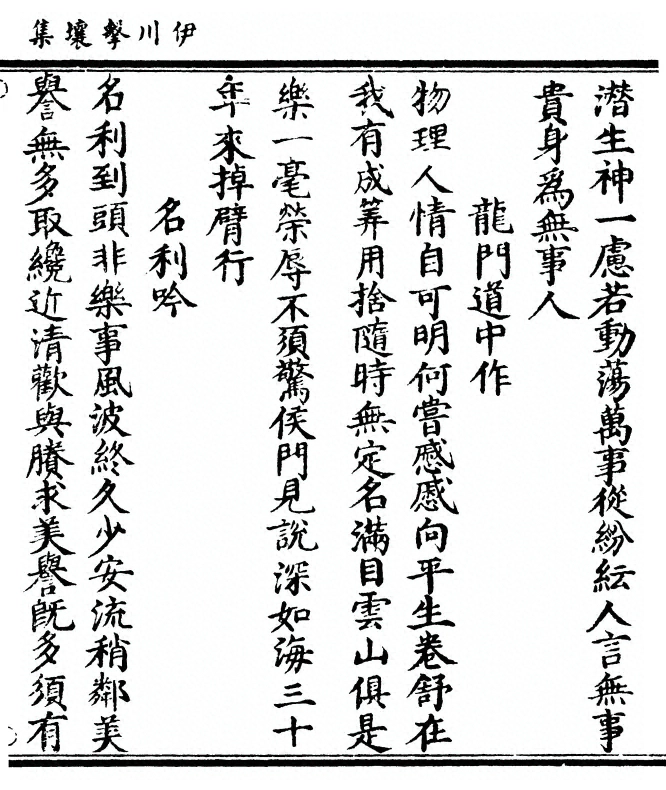 伊川擊壤集
潜生神一慮若動蕩萬事從紛紜人言無事
貴身爲無事人
龍門道中作
物理人情自可明何嘗慼慼向平生卷舒在
我有成筭用捨隨時無定名滿目雲山俱是
樂一毫榮辱不須驚侯門見說深如海三十
年來掉臂行
名利吟
名利到頭非樂事風波終久少安流稍鄰美
譽無多取纔近清歡與賸求美譽旣多須有